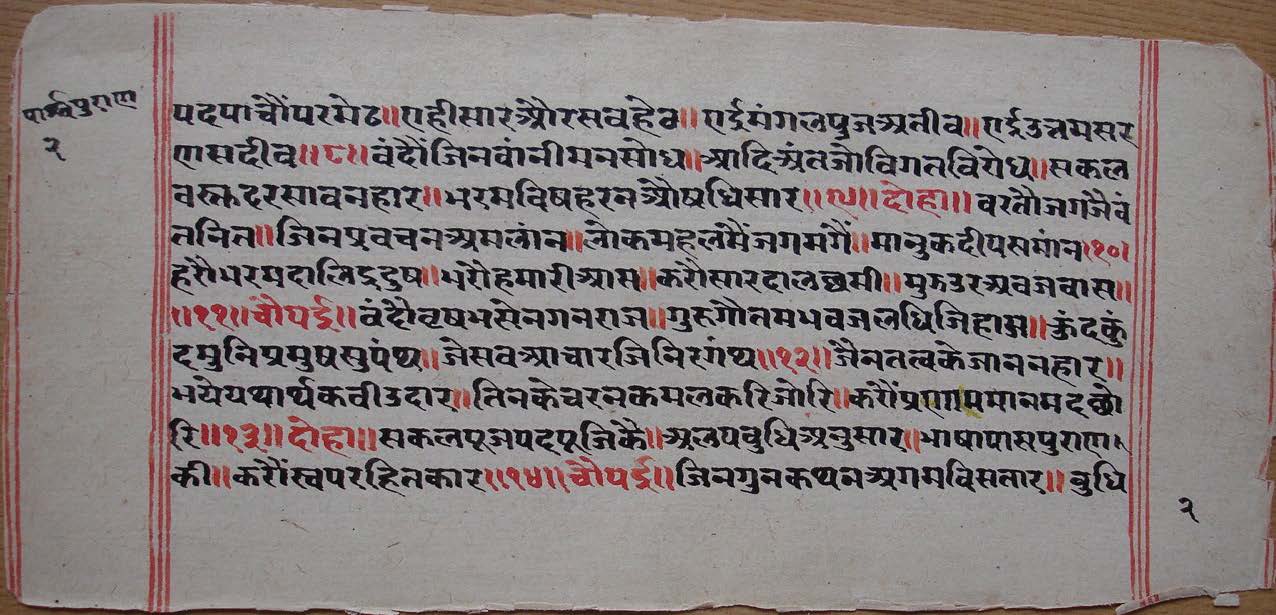 पार्श्वपुराण
२
पदपाचौंपरमेठ॥एहीसारऔरसवहेठ॥एईमंगलपुजअतीव॥एईउत्तमसर
णसदीव॥८॥वंदौंजिनवांनीमनसोध॥आदिअंतजोविगतविरोध॥सकल
वस्तदरसावनहार॥भरमविषहरनऔषधिसार॥९॥दोहा॥वरतौजगजैवं
तनित॥जिनप्रवचनअमलांन॥लोकमहलमैंजगमगैं॥मानुकदीपसमांन॥१०॥
हरौभरमदालिद्रदुष॥भरौहमारीआस॥करौसारदालछमी॥मुझउरअवजवास॥
॥११॥चौपई॥वंदौवृषभसेनगनराज॥गुरूगौतमभवजलधिजिहाज॥कुंदकुं
दमुनिप्रमुषसुपंथ॥जेसवआचारजिनिरगंथ॥१२॥जैनतत्वकेजाननहार॥
भयेयथार्थकवीउदार॥तिनकेचरनकमलकरिजोरि॥करौंप्रणामपमानमदछो
रि॥१३॥दोहा॥सकलपूजपदपूजिकै॥अलपवुधिअनुसार॥भाषापासपुराण॥
की॥करौंस्वपरहितकार॥१४॥चौपई॥जिनगुनकथनअगमविसतार॥वुधि
२